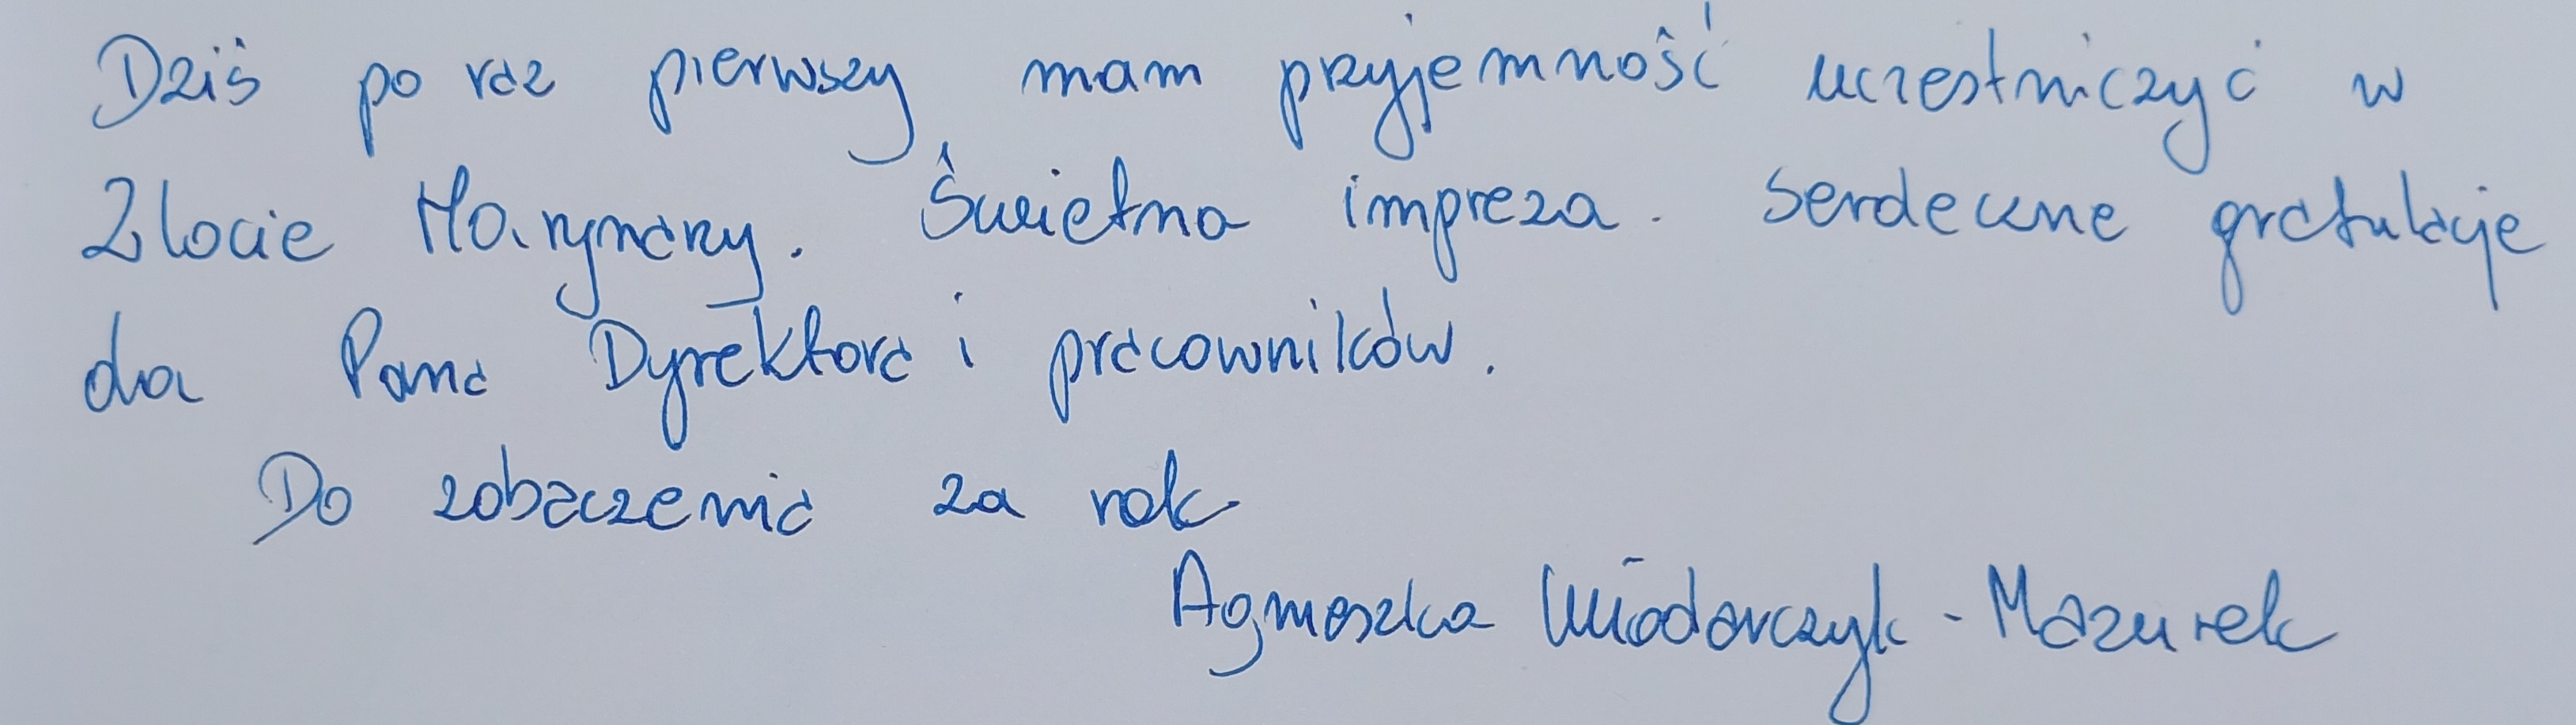 Dziś po raz pierwszy mam przyjemność uczestniczyć w
Zlocie Marynarzy. Świetna impreza. Serdeczne gratulacje
dla Pana Dyrektora i pracowników.
Do zobaczenia za rok
Agnieszka Włodarczyk - Mazurek